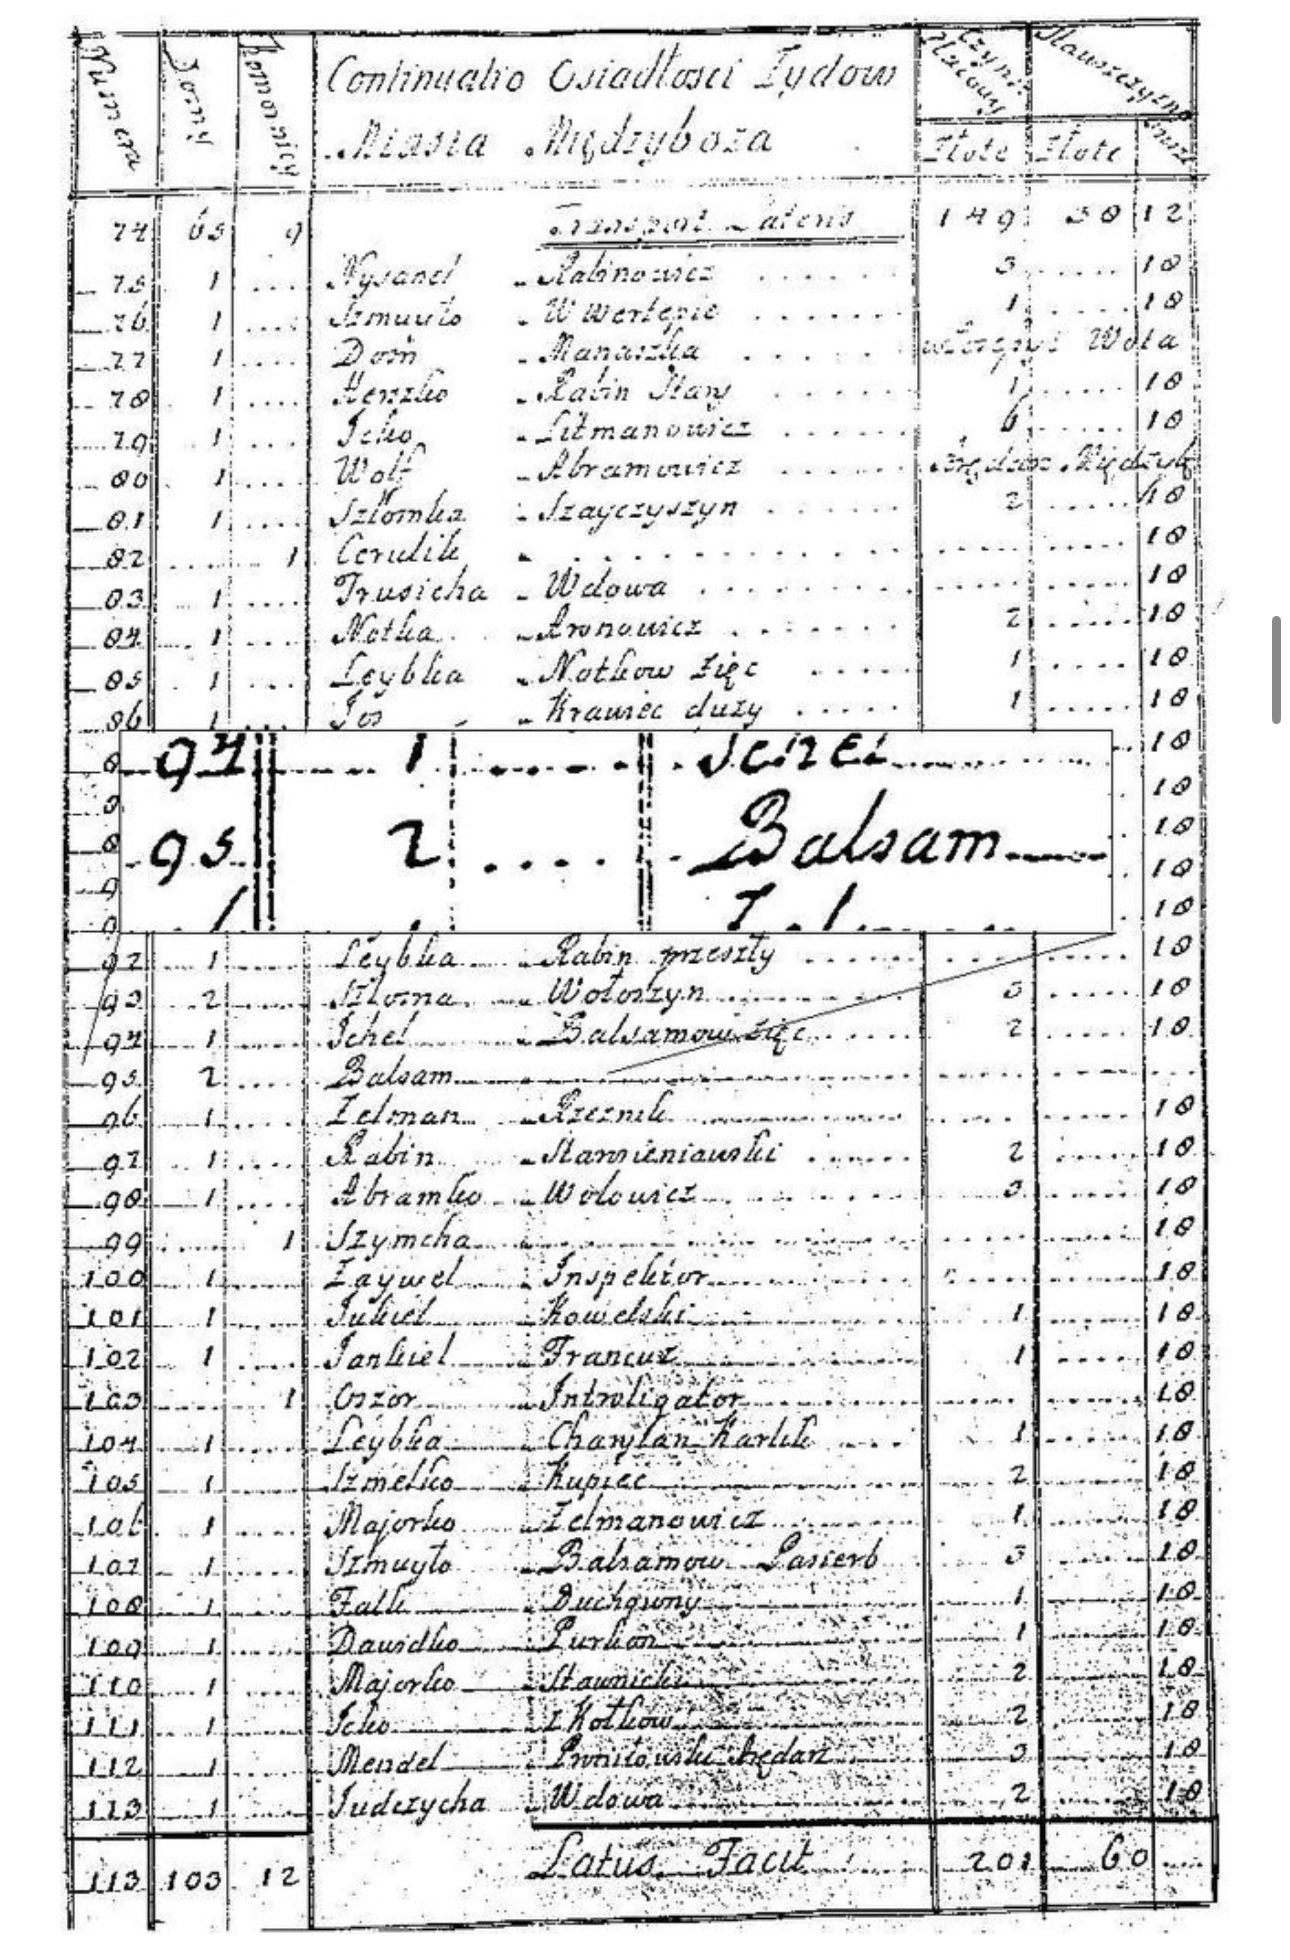 Numera Domy Komornicy Continuatio Osiadłosci Zydow Czynsz Placowy Stawszczyzna
Miasta Międzyboza Złote Złote
74 65 9 Transport Lateris 149 38 12
75 1 .... Nysanel - Rabinowicz ...... 3 .... 18
76 1 .... Szmuyło - W Wertepie ...... 1 .... 18
77 1 .... Dom - Manaszka ...... Wola
78 1 .... Herszko - Rabin Stary 1 .... 18
79 1 .... Icko - Litmanowicz ...... 6 .... 18
80 1 .... Wolf - Abramowicz ......
81 1 .... Szlomka - Szayczyszyn ...... 2 .... 18
82 .... 1 Cerulik - ...... 18
83 1 .... Trusicha - Wdowa ...... 18
84 1 .... Notka - Aronowicz ...... 2 .... 18
85 1 .... Leybka - Notkow Zięc ...... 1 .... 18
86 1 .... Jos - Krawiec duzy ...... 1 .... 18
94 1 .... Ichel 18
18
95 2 .... Balsam 18
18
18
92 1 .... Leybka - Rabin przeszły ...... 18
93 2 .... Szloma - Wołoszyn ...... 3 .... 18
94 1 .... Ichel - Balsamow Zięc 2 .... 18
95 2 .... Balsam
96 1 .... Zelman - Rzeznik ...... 18
97 1 .... Rabin - Stansieniawski ...... 2 .... 18
98 1 .... Abramko - Wolowicz ...... 3 .... 18
99 .... 1 Szymcha ...... 18
100 1 .... Zaywel - Inspektor ...... 18
101 1 .... Jukiel - Kowelski 1 .... 18
102 1 .... Jankiel - Francuz 1 .... 18
103 .... 1 Oszor - Introligator ...... 18
104 1 .... Leybka - Charłan Karlik .... 1 .... 18
105 1 .... Szmelko - Kupiec 2 .... 18
106 1 .... Majorko - Zelmanowicz 1 .... 18
107 1 .... Szmuyło - Balsamow Pasierb 3 .... 18
108 1 .... Falk - Duchowny 1 .... 18
109 1 .... Dawidko - Purkon 1 .... 18
110 1 .... Majorko - Stawnicki 2 .... 18
111 1 .... Icko - z Kotkow 2 .... 18
112 1 .... Mendel - Arędarz 3 .... 18
113 1 .... Judczycha - Wdowa 2 .... 18
113 103 12 Latus Facit 201 60 ....